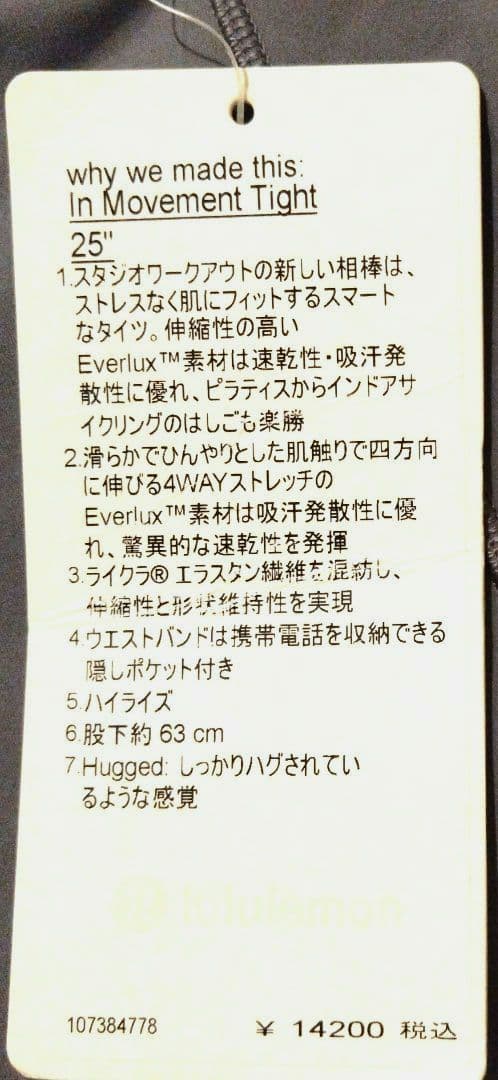 why we made this:
In Movement Tight
25"
1.スタジオワークアウトの新しい相棒は、
ストレスなく肌にフィットするスマート
なタイツ。伸縮性の高い
Everlux™素材は速乾性・吸汗発
散性に優れ、ピラティスからインドアサ
イクリングのはしごも楽勝
2.滑らかでひんやりとした肌触りで四方向
に伸びる4WAYストレッチの
Everlux™素材は吸汗発散性に優
れ、驚異的な速乾性を発揮
3.ライクラ® エラスタン繊維を混紡し、
伸縮性と形状維持性を実現
4.ウエストバンドは携帯電話を収納できる
隠しポケット付き
5.ハイライズ
6.股下約 63 cm
7.Hugged: しっかりハグされてい
るような感覚
lululemon
107384778 ¥ 14200 税込